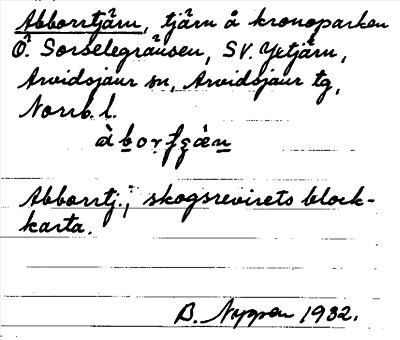 Abborrtjärn, tjärn å kronoparken
Ö. Sorselegränsen, SV. Yxtjärn,
Arvidsjaur sn, Arvidsjaur tg,
Norrb. l.
Abborrtj.; skogsrevirets block-
karta.
B. Nygren 1932.